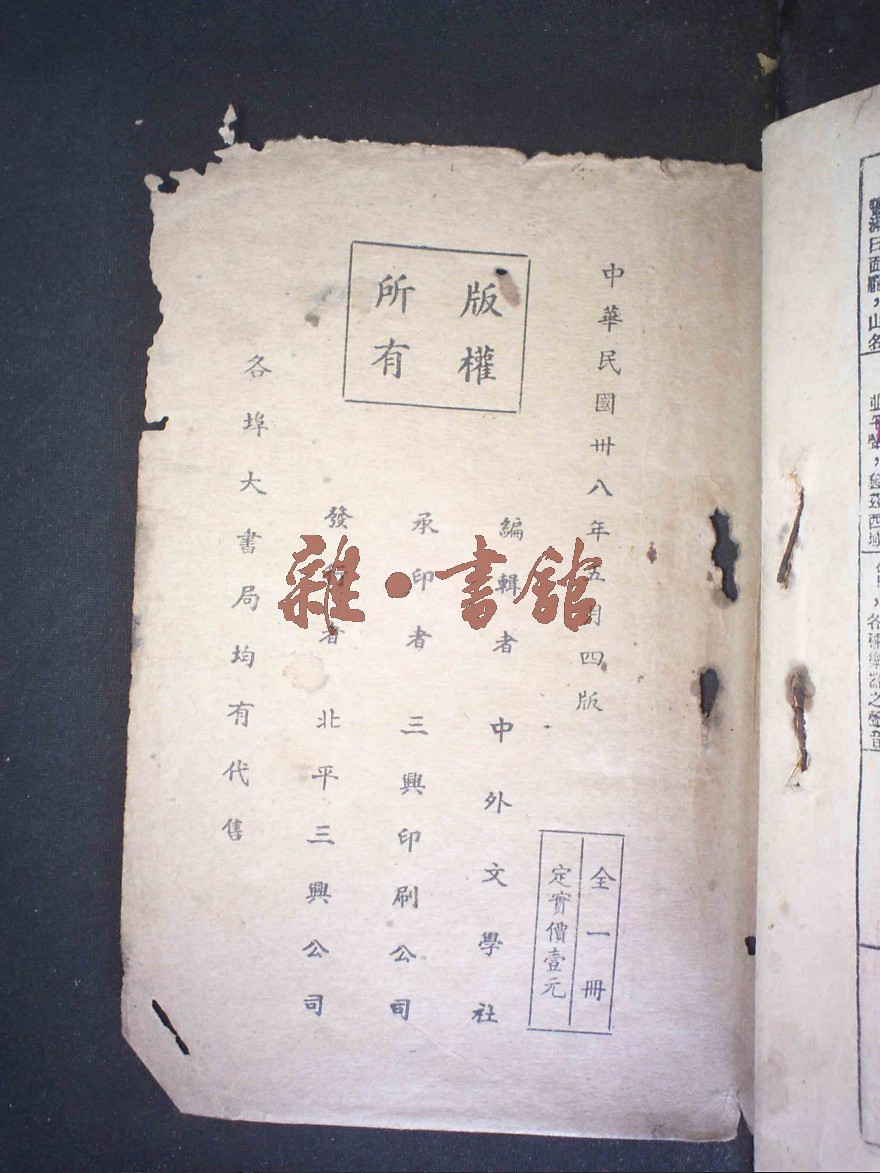 中華民國卅八年五月四版
版權
所有
全一冊
定實價壹元
編輯者 中外文學社
承印者 三興印刷公司
發行者 北平三興公司
各埠大書局均有代售
雜·書舘